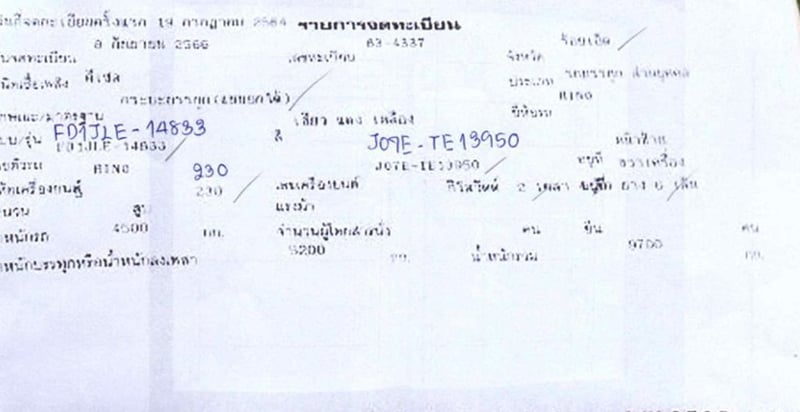 วันที่จดทะเบียนครั้งแรก 19 กรกฎาคม 2564 รายการจดทะเบียน
8 กันยายน 2566 63-4337 ร้อยเอ็ด
วันจดทะเบียน เลขทะเบียน จังหวัด
ชนิดเชื้อเพลิง ดีเซล ประเภท รถบรรทุก ส่วนบุคคล
กระบะบรรทุก(แบบยกได้) ยี่ห้อรถ HINO
ลักษณะ/มาตรฐาน เขียว แดง เหลือง
FD1JLE-14833 J07E-TE13950
แบบ/รุ่น FD1JLE-14833 สี หน้าซ้าย
HINO 230 J07E-TE13950 อยู่ที่ ขวาเครื่อง
ยี่ห้อเครื่องยนต์ 230 เลขเครื่องยนต์ 2 เพลา ยาง 6 เส้น
จำนวน สูบ แรงม้า
น้ำหนักรถ 4500 กก. จำนวนผู้โดยสารนั่ง คน ยืน คน
น้ำหนักบรรทุกหรือน้ำหนักลงเพลา 5200 กก. น้ำหนักรวม 9700 กก.